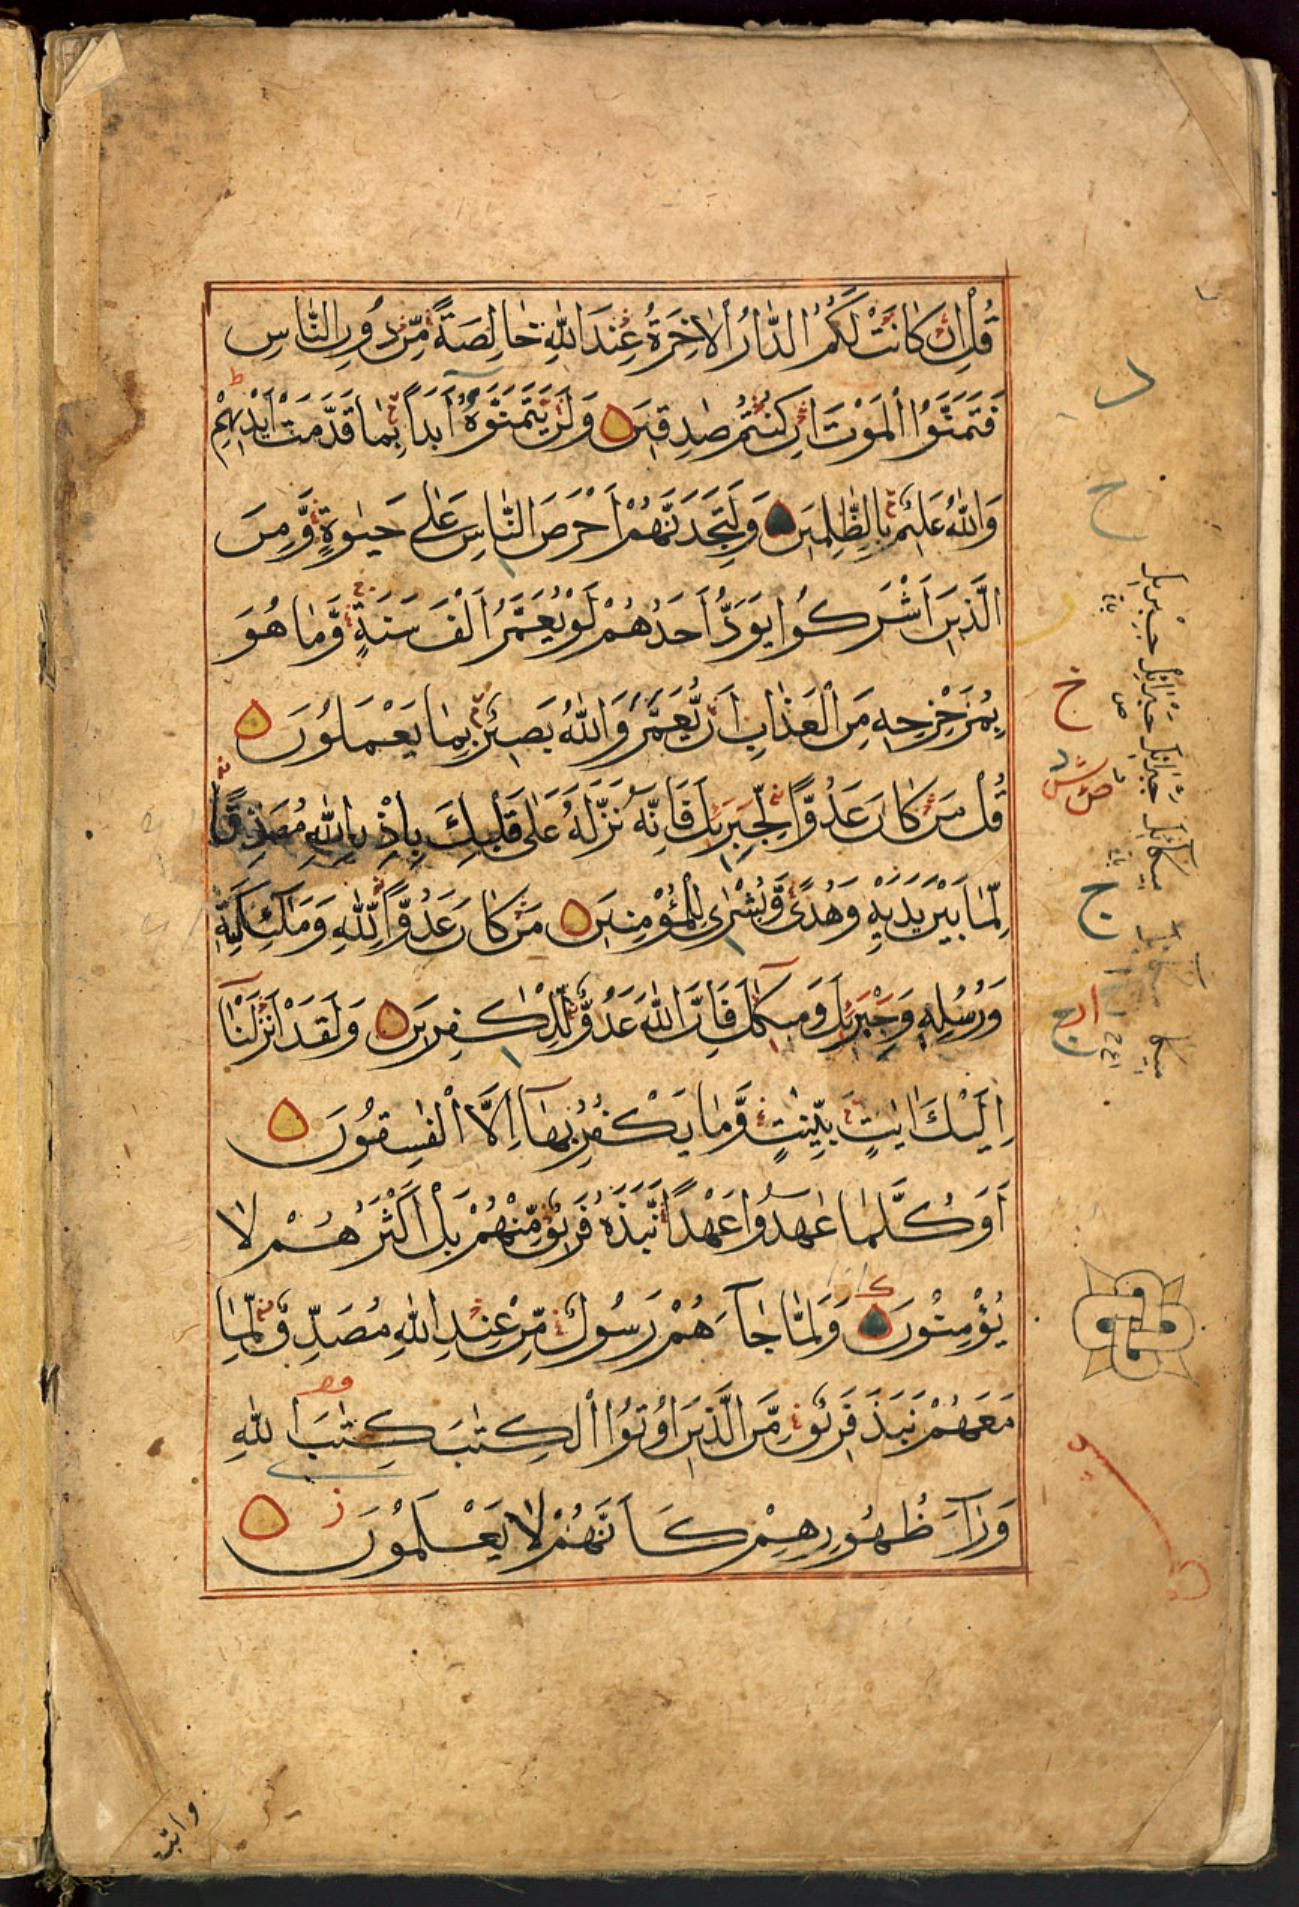 قُلْ اِنْ كَانَتْ لَكُمُ الدَّارُ الْاٰخِرَةُ عِنْدَ اللّٰهِ خَالِصَةً مِّنْ دُوْنِ النَّاسِ
فَتَمَنَّوُا الْمَوْتَ اِنْ كُنْتُمْ صٰدِقِيْنَ وَلَنْ يَّتَمَنَّوْهُ اَبَدًا بِمَا قَدَّمَتْ اَيْدِيْهِمْ
وَاللّٰهُ عَلِيْمٌ بِالظّٰلِمِيْنَ وَلَتَجِدَنَّهُمْ اَحْرَصَ النَّاسِ عَلٰى حَيٰوةٍ وَّمِنَ
الَّذِيْنَ اَشْرَكُوْا يَوَدُّ اَحَدُهُمْ لَوْ يُعَمَّرُ اَلْفَ سَنَةٍ وَّمَا هُوَ
بِمُزَحْزِحِهٖ مِنَ الْعَذَابِ اَنْ يُّعَمَّرَ وَاللّٰهُ بَصِيْرٌ بِمَا يَعْمَلُوْنَ
قُلْ مَنْ كَانَ عَدُوًّا لِّجِبْرِيْلَ فَاِنَّهٗ نَزَّلَهٗ عَلٰى قَلْبِكَ بِاِذْنِ اللّٰهِ مُصَدِّقًا
لِّمَا بَيْنَ يَدَيْهِ وَهُدًى وَّبُشْرٰى لِلْمُؤْمِنِيْنَ مَنْ كَانَ عَدُوًّا لِّلّٰهِ وَمَلٰٓئِكَتِهٖ
وَرُسُلِهٖ وَجِبْرِيْلَ وَمِيْكٰىلَ فَاِنَّ اللّٰهَ عَدُوٌّ لِّلْكٰفِرِيْنَ وَلَقَدْ اَنْزَلْنَآ
اِلَيْكَ اٰيٰتٍ بَيِّنٰتٍ وَّمَا يَكْفُرُ بِهَآ اِلَّا الْفٰسِقُوْنَ
اَوَكُلَّمَا عٰهَدُوْا عَهْدًا نَّبَذَهٗ فَرِيْقٌ مِّنْهُمْ بَلْ اَكْثَرُهُمْ لَا
يُؤْمِنُوْنَ وَلَمَّا جَآءَهُمْ رَسُوْلٌ مِّنْ عِنْدِ اللّٰهِ مُصَدِّقٌ لِّمَا
مَعَهُمْ نَبَذَ فَرِيْقٌ مِّنَ الَّذِيْنَ اُوْتُوا الْكِتٰبَ كِتٰبَ اللّٰهِ
وَرَآءَ ظُهُوْرِهِمْ كَاَنَّهُمْ لَا يَعْلَمُوْنَ